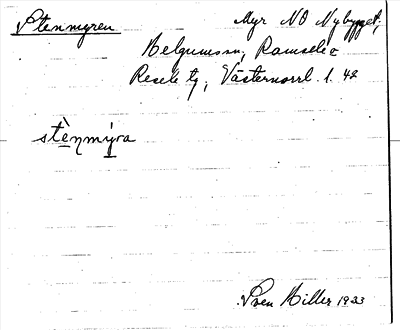 Stenmyren Myr NO Nybygget,
Helgumssn, Ramsele o
Resele tg, Västernorrl. l. 42
stènmýra
Sven Hiller 1933